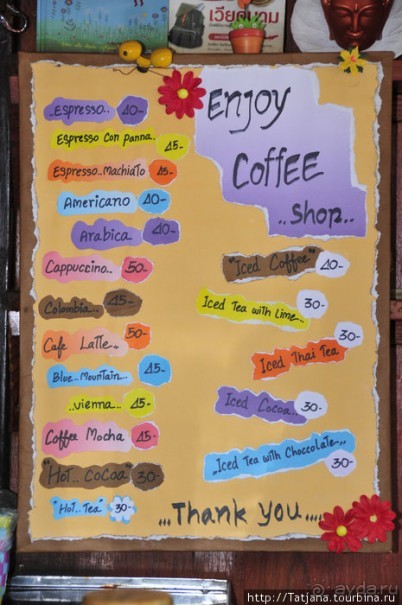 เวียดนาม
Enjoy
Coffee
..Shop..
..Espresso.. 40-
Espresso Con Panna.. 45-
Espresso..Machiato 45-
Americano 40-
Arabica 40-
Cappuccino.. 50-
Colombia... 45-
Cafe Latte.. 50-
Blue..Mountain.. 45-
..vienna.. 45-
Coffee Mocha 45-
"Hot..Cocoa" 30-
"Hot..Tea" 30-
"Iced Coffee" 40-
Iced Tea with Lime.. 30-
Iced Thai Tea 30-
Iced Cocoa.. 30-
,,Iced Tea with Chocolate,, 30-
...Thank you....
ayda.ru
http://Tatjana.tourbina.ru